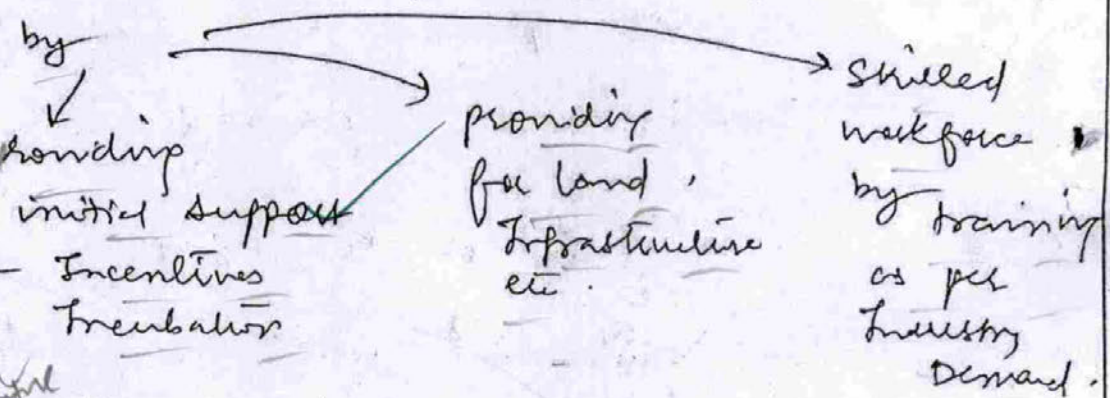 by
roviding
initial support
- Incentives
Incubation
providing
for land.
Infrastructure
etc.
Skilled
workforce
by training
as per
Industry
Demand.